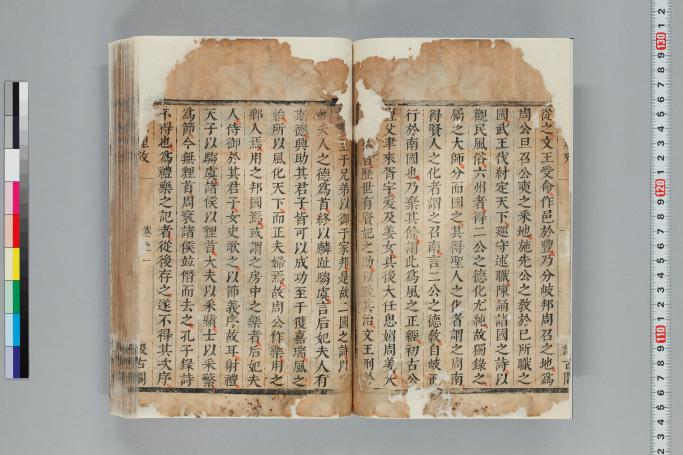 從之文王受命作邑於豐乃分岐邦周召之地爲
周公旦召公奭之采地施先公之教於已所職之
國武王伐紂定天下廵守述職陳誦諸國之詩以
觀民風俗六州者得二公之德化尤純故獨錄之
屬之大師分而國之其得聖人之化者謂之周南
得賢人之化者謂之召南言二公之德教自岐而
行於南國也乃棄其餘謂此爲風之正經初古公
亶父聿來胥宇爰及姜女其後大任思媚周姜大
音歷世有賢妃之助以致其治文王刑於
至于兄弟以御于家邦是故二國之詩以
夫人之德爲首終以麟趾騶虞言后妃夫人有
斯德興助其君子皆可以成功至于獲嘉瑞風之
始所以風化天下而正夫婦焉故周公作樂用之
鄉人焉用之邦國焉或謂之房中之樂者后妃夫
人侍御於其君子女史歌之以節義序故耳射禮
天子以騶虞諸侯以貍首大夫以采蘋士以采蘩
爲節今無貍首周衰諸侯竝僭而去之孔子錄詩
不得也爲禮樂之記者從後存之遂不得其次序
卷之一
汲古閣